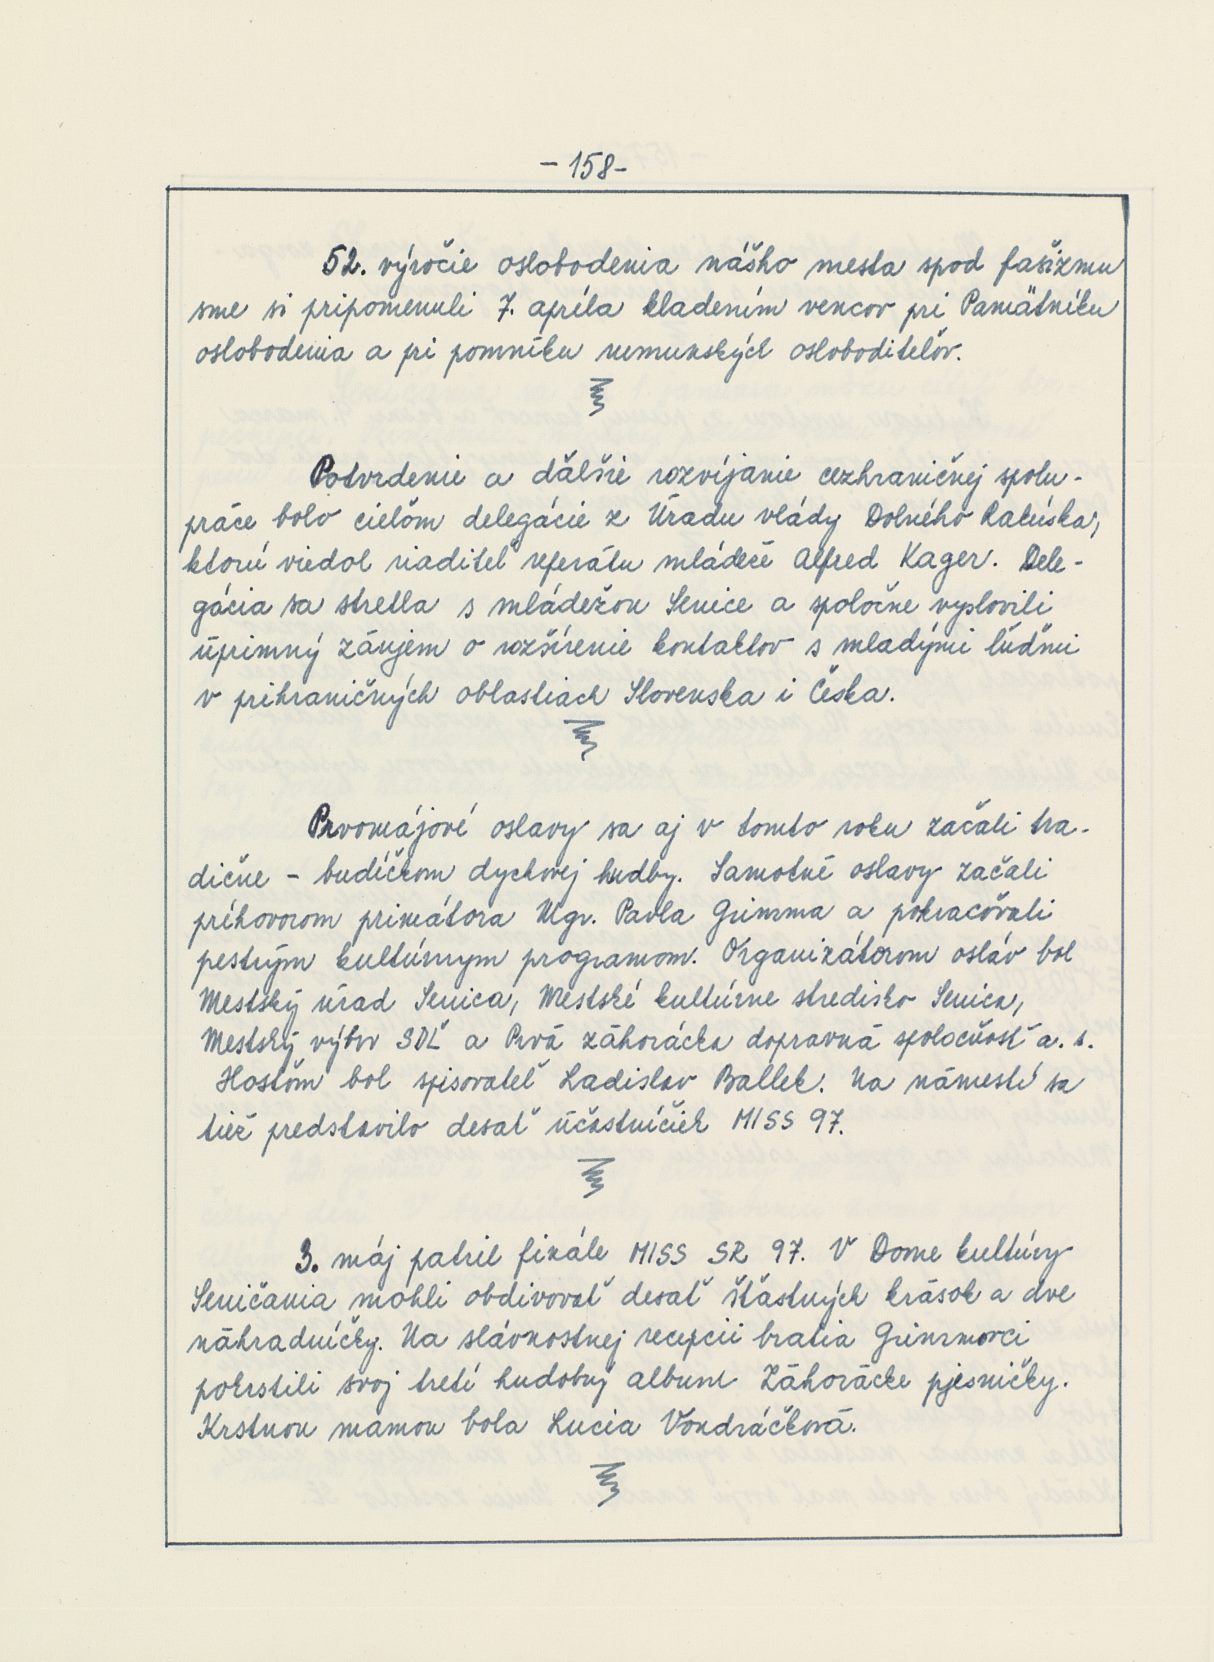 - 158 -
52. výročie oslobodenia nášho mesta spod fašizmu
sme si pripomenuli 7. apríla kladením vencov pri Pamätníku
oslobodenia a pri pomníku rumunských osloboditeľov.
Potvrdenie a ďalšie rozvíjanie cezhraničnej spolu-
práce bolo cieľom delegácie z Úradu vlády Dolného Rakúska,
ktorú viedol riaditeľ referátu mládeže Alfred Kager. Dele-
gácia sa stretla s mládežou Senice a spoločne vyslovili
úprimný záujem o rozšírenie kontaktov s mladými ľuďmi
v prihraničných oblastiach Slovenska i Česka.
Prvomájové oslavy sa aj v tomto roku začali tra-
dične - budíčkom dychovej hudby. Samotné oslavy začali
príhovorom primátora Mgr. Pavla Grimma a pokračovali
pestrým kultúrnym programom. Organizátorom osláv bol
Mestský úrad Senica, Mestské kultúrne stredisko Senica,
Mestský výbor SDĽ a Prvá záhorácka dopravná spoločnosť a. s.
Hosťom bol spisovateľ Ladislav Ballek. Na námestí sa
tiež predstavilo desať účastníčiek MISS 97.
3. máj patril finále MISS SR 97. V Dome kultúry
Seničania mohli obdivovať desať šťastných krások a dve
náhradníčky. Na slávnostnej recepcii bratia Grimmovci
pokrstili svoj tretí hudobný album Záhorácke pjesničky.
Krstnou mamou bola Lucia Vondráčková.